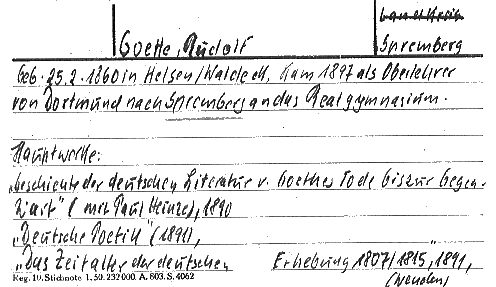 Landkreis
Goette, Rudolf
Spremberg
Geb. 25.2.1860 in Helsen/Waldeck, kam 1897 als Oberlehrer
von Dortmund nach Spremberg an das Realgymnasium.
Hauptwerke:
„Geschichte der deutschen Literatur v. Goethes Tode bis zur Gegen-
wart" (mit Paul Heinze), 1890
„Deutsche Poetik" (1891),
„Das Zeitalter der deutschen Erhebung 1807/1815", 1891,
Reg. 10. Stichnote 1.50. 232000. A. 803. S. 4062